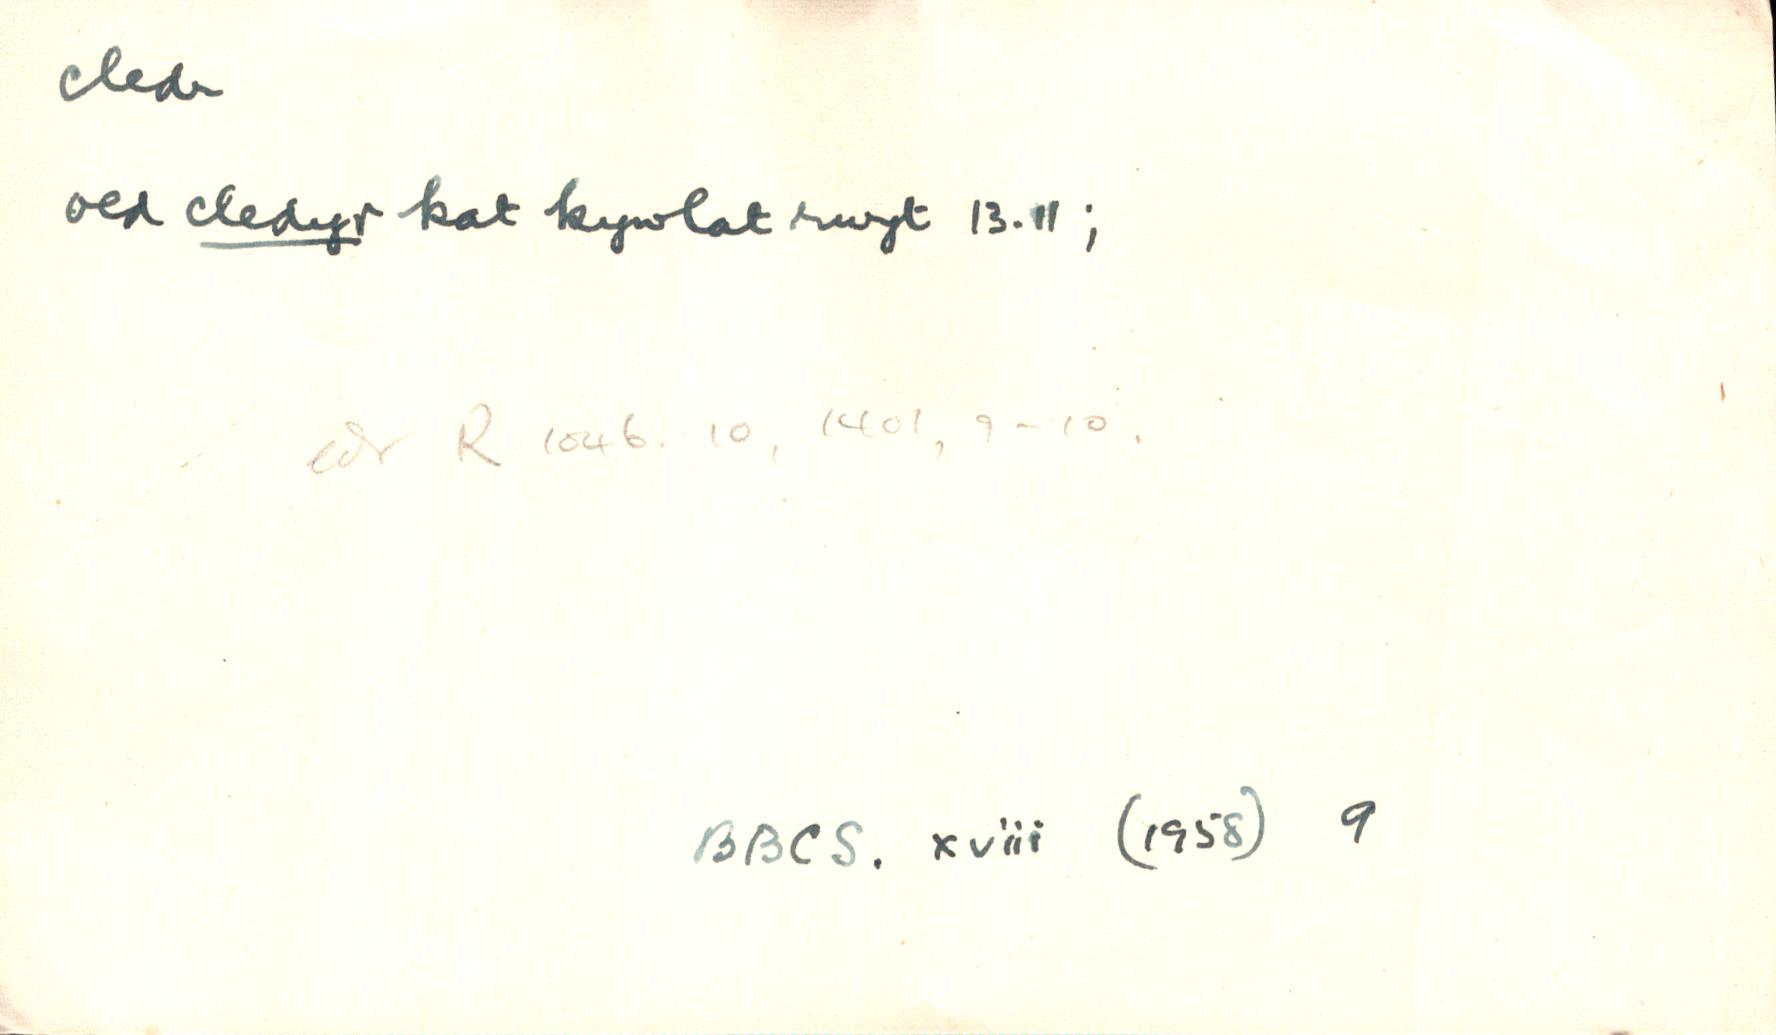 cledr
oed cledyr kat kywlat rwyt 13.11;
edr R 1046. 10, 1401, 9-10.
BBCS. xviii (1958) 9